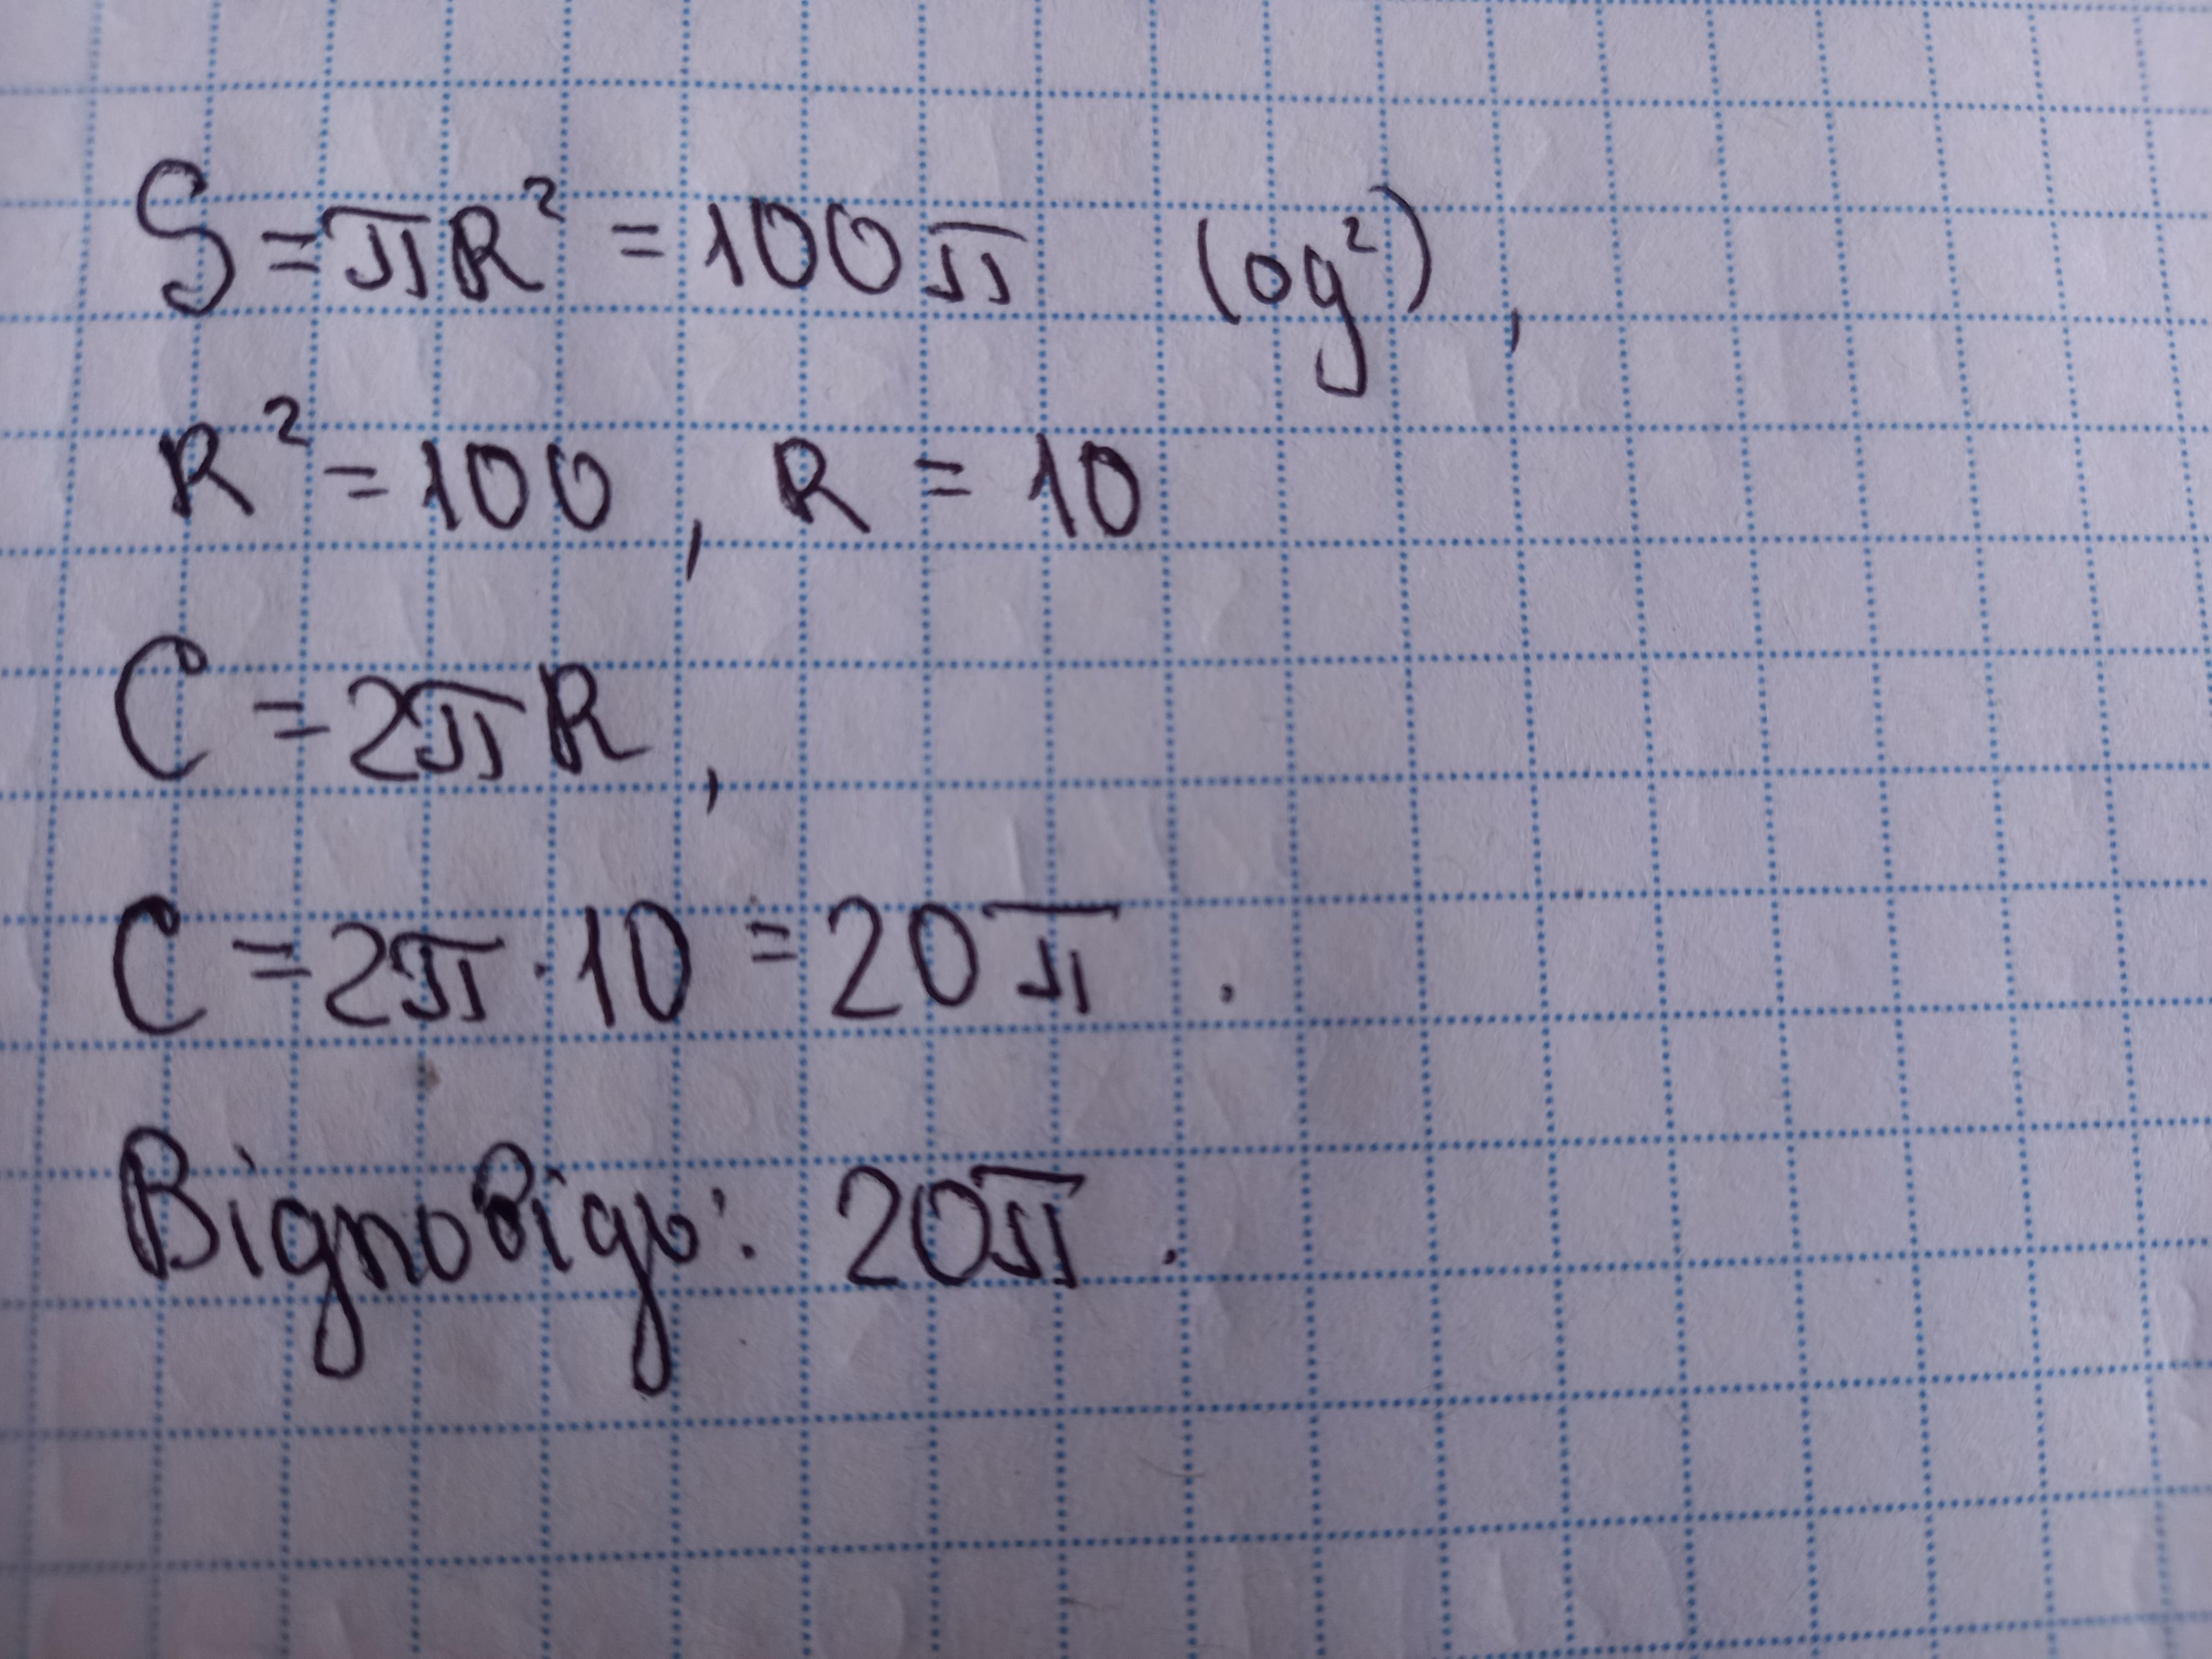 S = πR² = 100π (од²),
R² = 100, R = 10
C = 2πR,
C = 2π · 10 = 20π.
Відповідь: 20π.